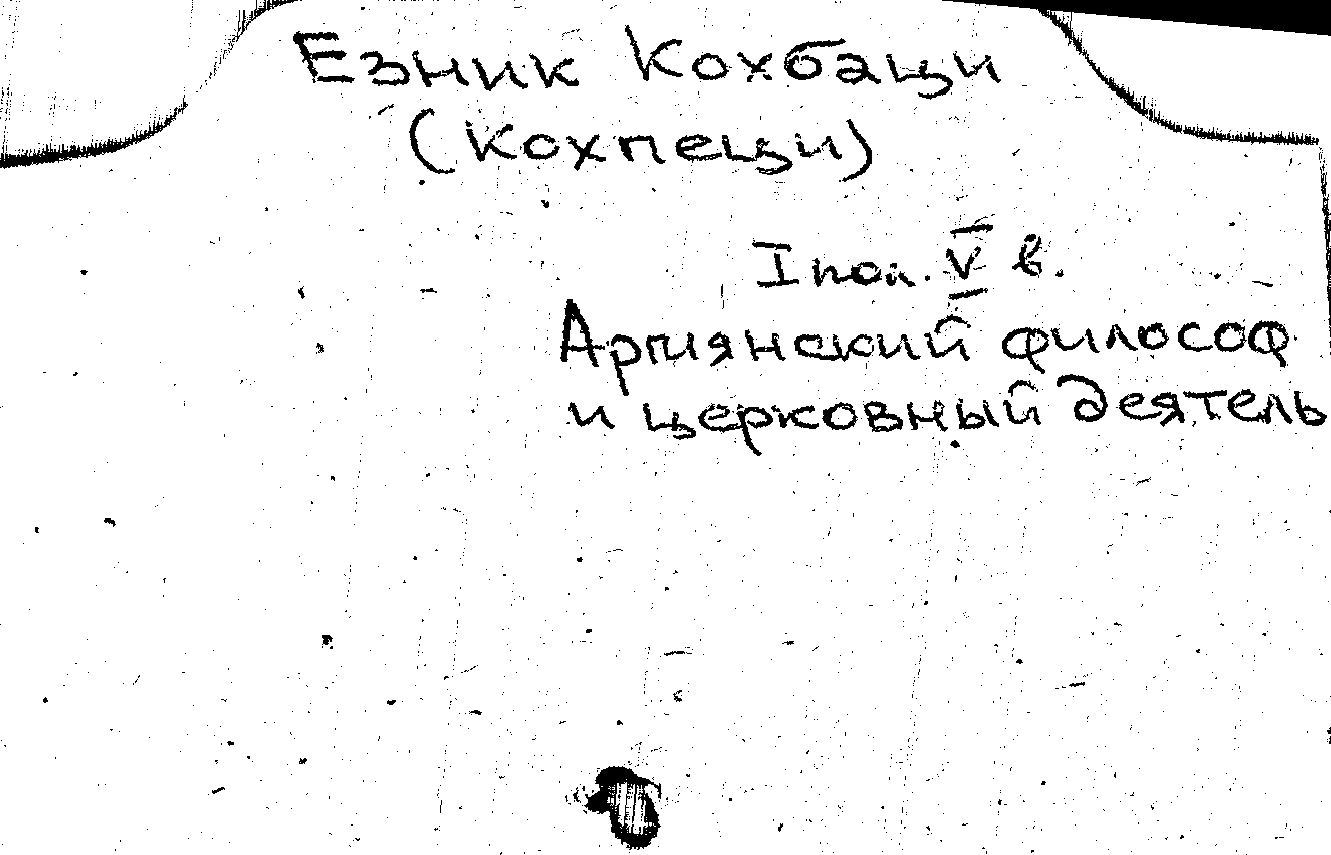 Езник Кохбаци
(Кохпеци)
I пол. V в.
Армянский философ
и церковный деятель